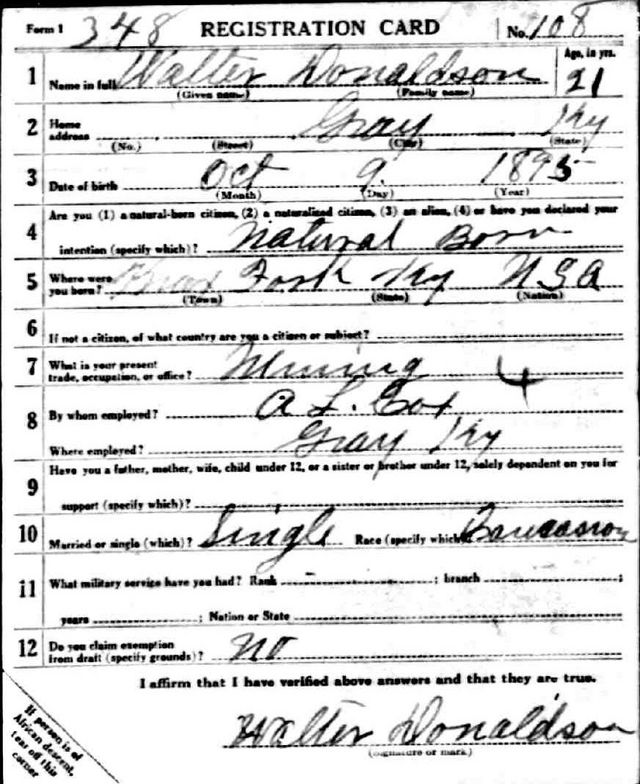 Form 1 348 REGISTRATION CARD No. 108
1 Name in full Walter Donaldson Age, in yrs. 21
(Given name) (Family name)
2 Home address Gray Ky
(No.) (Street) (City) (State)
3 Date of birth Oct 9 1895
(Month) (Day) (Year)
4 Are you (1) a natural-born citizen, (2) a naturalized citizen, (3) an alien, (4) or have you declared your
intention (specify which)? Natural Born
5 Where were you born? Fork Ky USA
(Town) (State) (Nation)
6 If not a citizen, of what country are you a citizen or subject?
7 What is your present trade, occupation, or office? Mining 4
8 By whom employed? A L. Cox
Where employed? Gray Ky
9 Have you a father, mother, wife, child under 12, or a sister or brother under 12, solely dependent on you for
support (specify which)?
10 Married or single (which)? Single Race (specify which)
11 What military service have you had? Rank - ; branch ;
years ; Nation or State
12 Do you claim exemption from draft (specify grounds)? No
I affirm that I have verified above answers and that they are true.
Walter Donaldson
(Signature or mark)
If person is of
African descent,
tear off this
corner